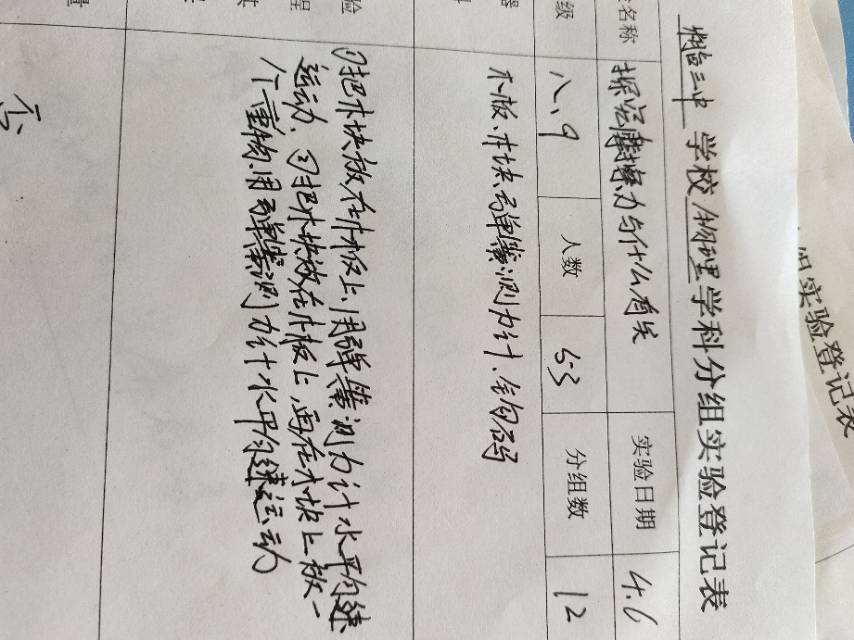 三中学校物理学科分组实验登记表
名称 探究摩擦力与什么有关 实验日期 4.6
级 八、9 人数 53 分组数 12
器
木版、木块、弹簧测力计、钩码
验
程
①把木块放在木板上,用弹簧测力计水平匀速
运动,②把木块放在木板上,再在木块上放一
个重物,用弹簧测力计水平匀速运动
量
组实验登记表